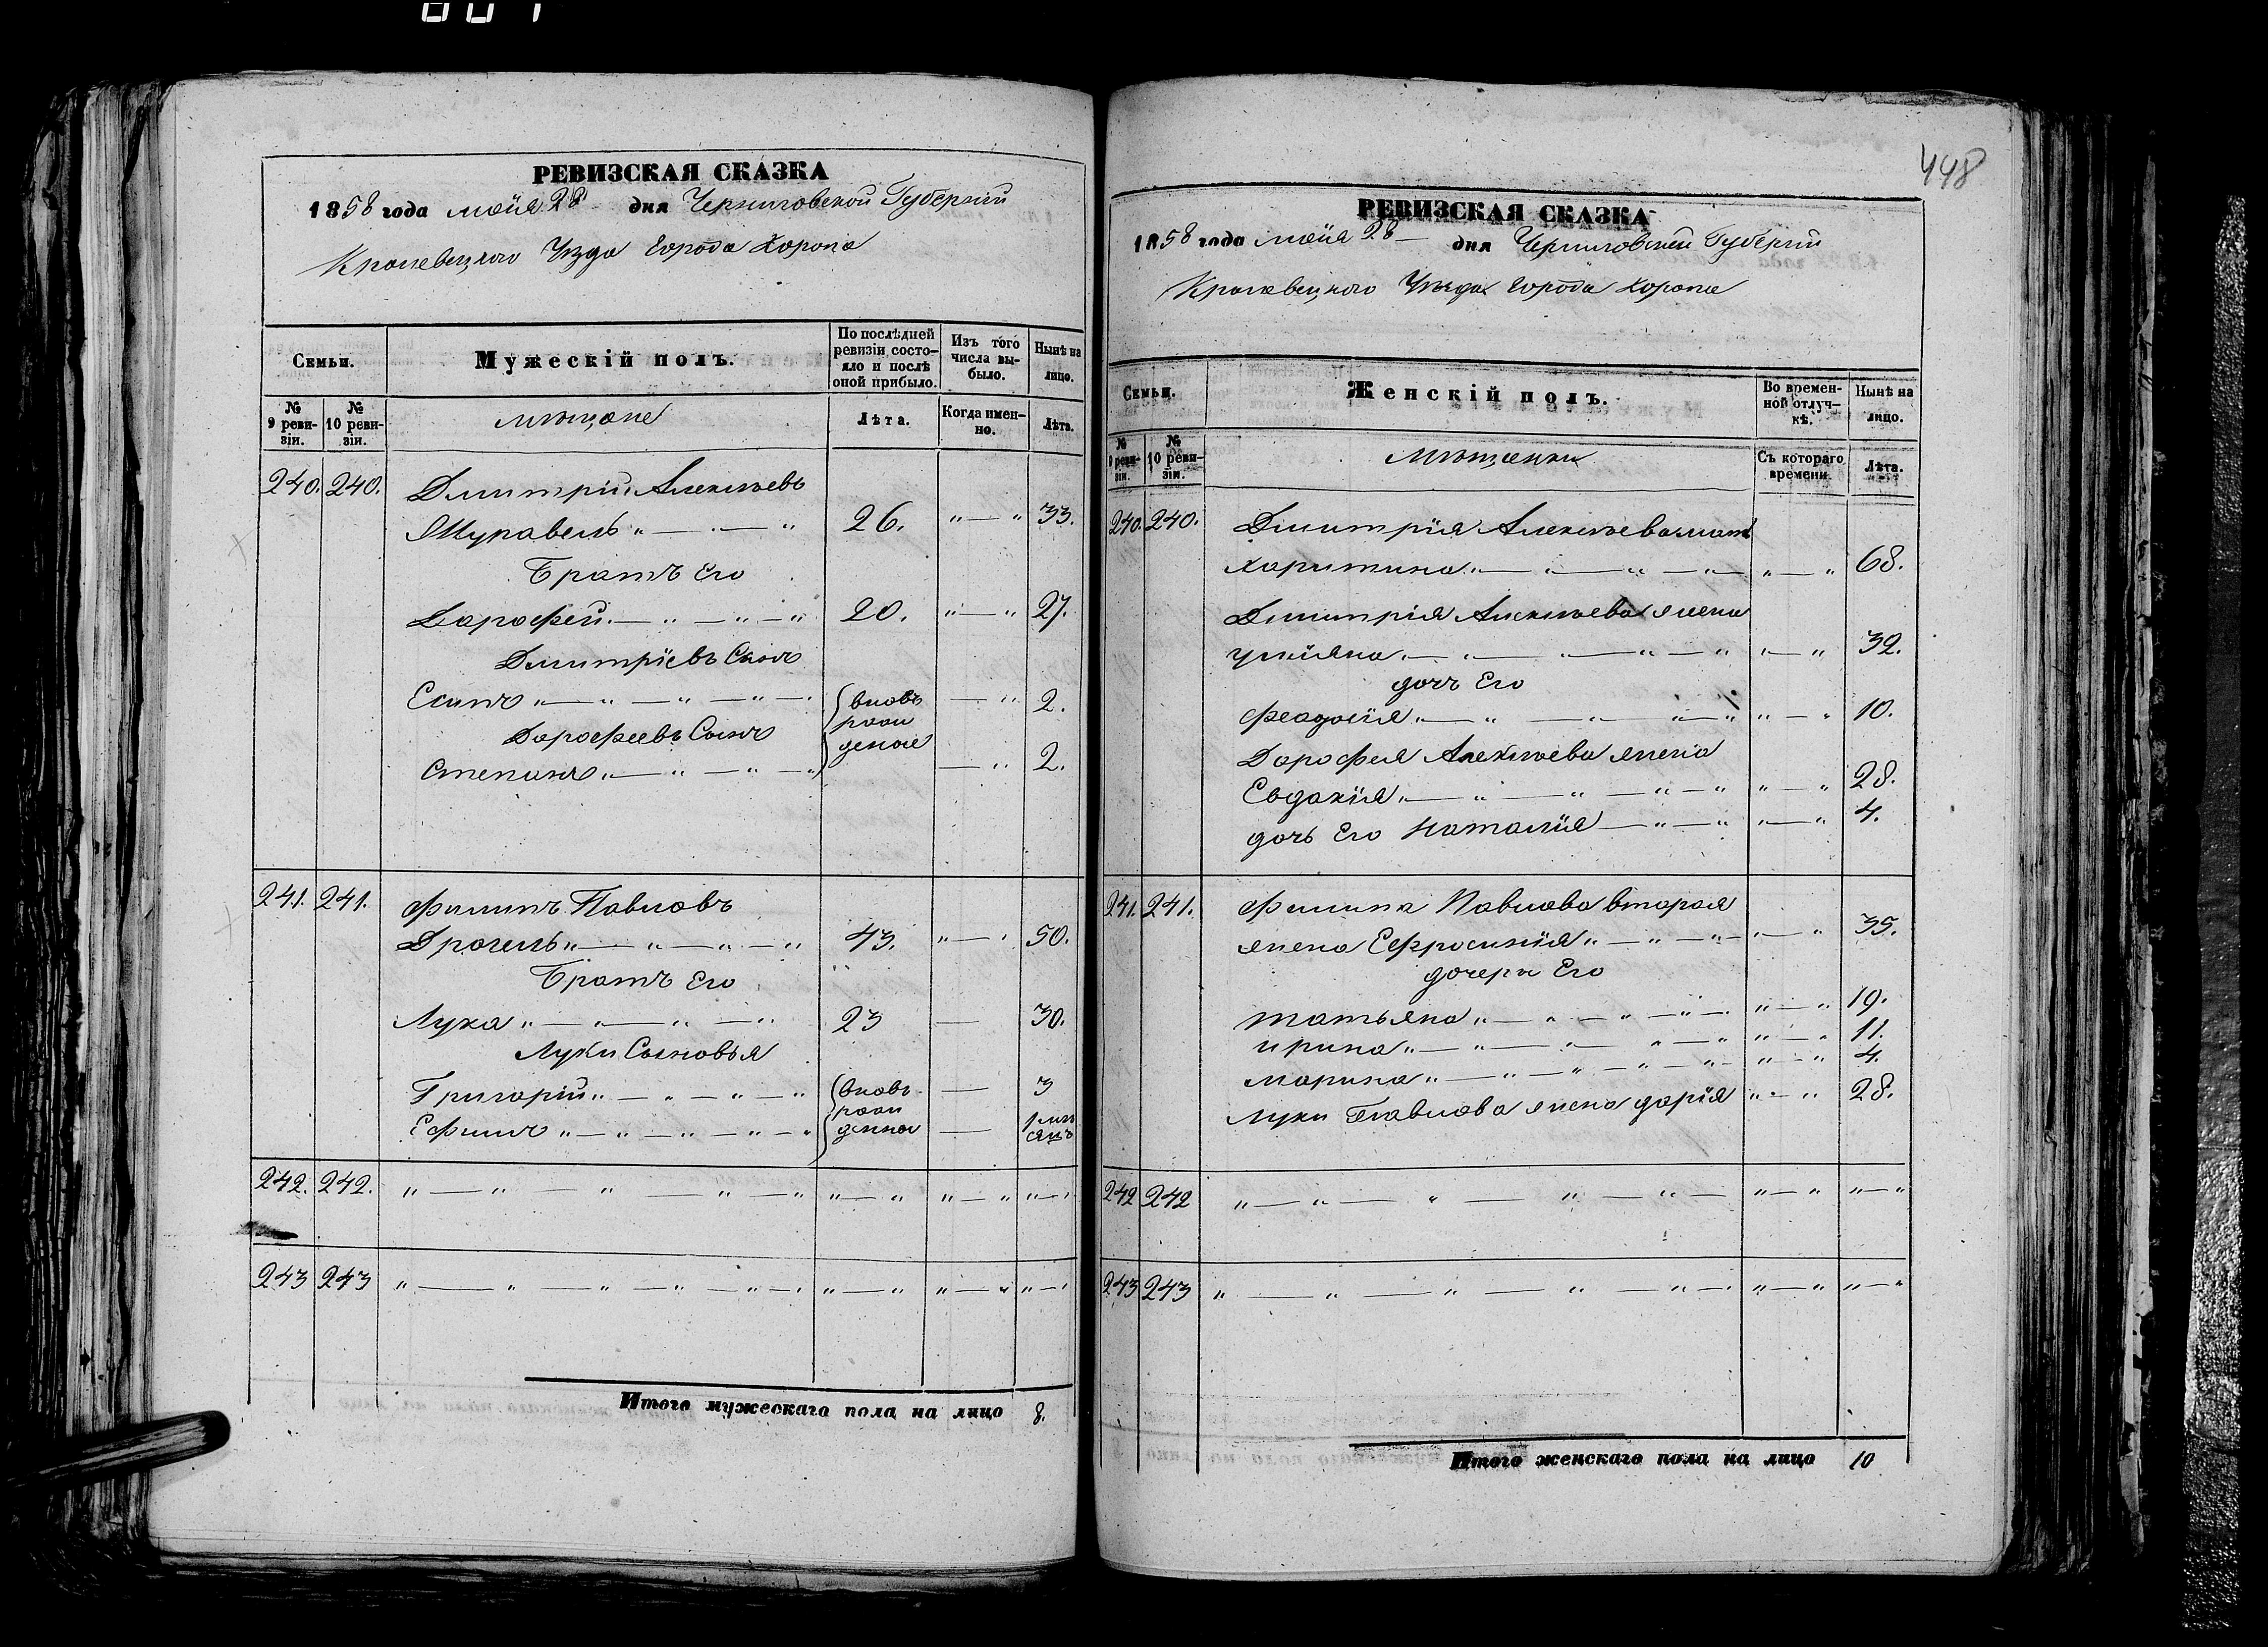 448
РЕВИЗСКАЯ СКАЗКА
1858 года маія 28 дня Черниговской Губерніи
Кролевецкого Уѣзда города Коропа
Семьи.
Мужескій полъ.
По послѣдней ревизіи состояло и послѣ оной прибыло.
Изъ того числа выбыло.
Нынѣ на лицо.
№ 9 ревизіи.
№ 10 ревизіи.
мѣщане
Лѣта.
Когда именно.
Лѣта.
240. 240. Дмитрій Алексѣевъ
Муравель " — " — " 26. " — " 33.
Братъ Его
Дарофей — " — " — " 20. " — " 27.
Дмитріевъ Сынъ
Есипъ " — " — " — " — " вновь — " 2.
Дарофеевъ Сынъ рожденые
Степанъ " — " — " — " — " 2.
241. 241. Филипъ Павловъ
Дрогель " — " — " — " 43. " — " 50.
Братъ Его
Лука " — " — " — " 23 — 30.
Луки Сыновья
Григорій " — " — " — " вновь — 3
Ефимъ " — " — " — " — " рожденые — 1 мѣсяцъ
242. 242. " — " — " — " — " " — " " — " " — "
243 243 " — " — " — " — " — " " — " " — " " — "
Итого мужескаго пола на лицо 8.
РЕВИЗСКАЯ СКАЗКА
1858 года маія 28 — дня Черниговской Губерніи
Кролевецкого Уѣзда города Коропа
Семьи.
Женскій полъ.
Во временной отлучкѣ.
Нынѣ на лицо.
№ 9 ревизіи.
№ 10 ревизіи.
мѣщанки
Съ котораго времени
Лѣта.
240. 240. Дмитрія Алексѣева мать
Харитина " — " — " — " — " " — " 68.
Дмитрія Алексѣева жена
Уліяна — " — " — " — " " — " 32.
дочь Его
Феодосія " — " — " — " — " " — " 10.
Дарофея Алексѣева жена
Евдакія " — " — " — " — " " — " 28.
дочь Его Наталія — " — " " — " 4.
241. 241. Филипа Павлова вторая
жена Ефросинія " — " — " — " — " 35.
дочери Его
Татьяна " — " — " — " — " — " 19.
Ирина " — " — " — " — " " — " 11.
Марина " — " — " — " — " " — " 4.
Луки Павлова жена Дарія " — " 28.
242 242 " — " — " — " — " — " — " " — "
243 243 " — " — " — " — " — " — " " — "
Итого женскаго пола на лицо 10